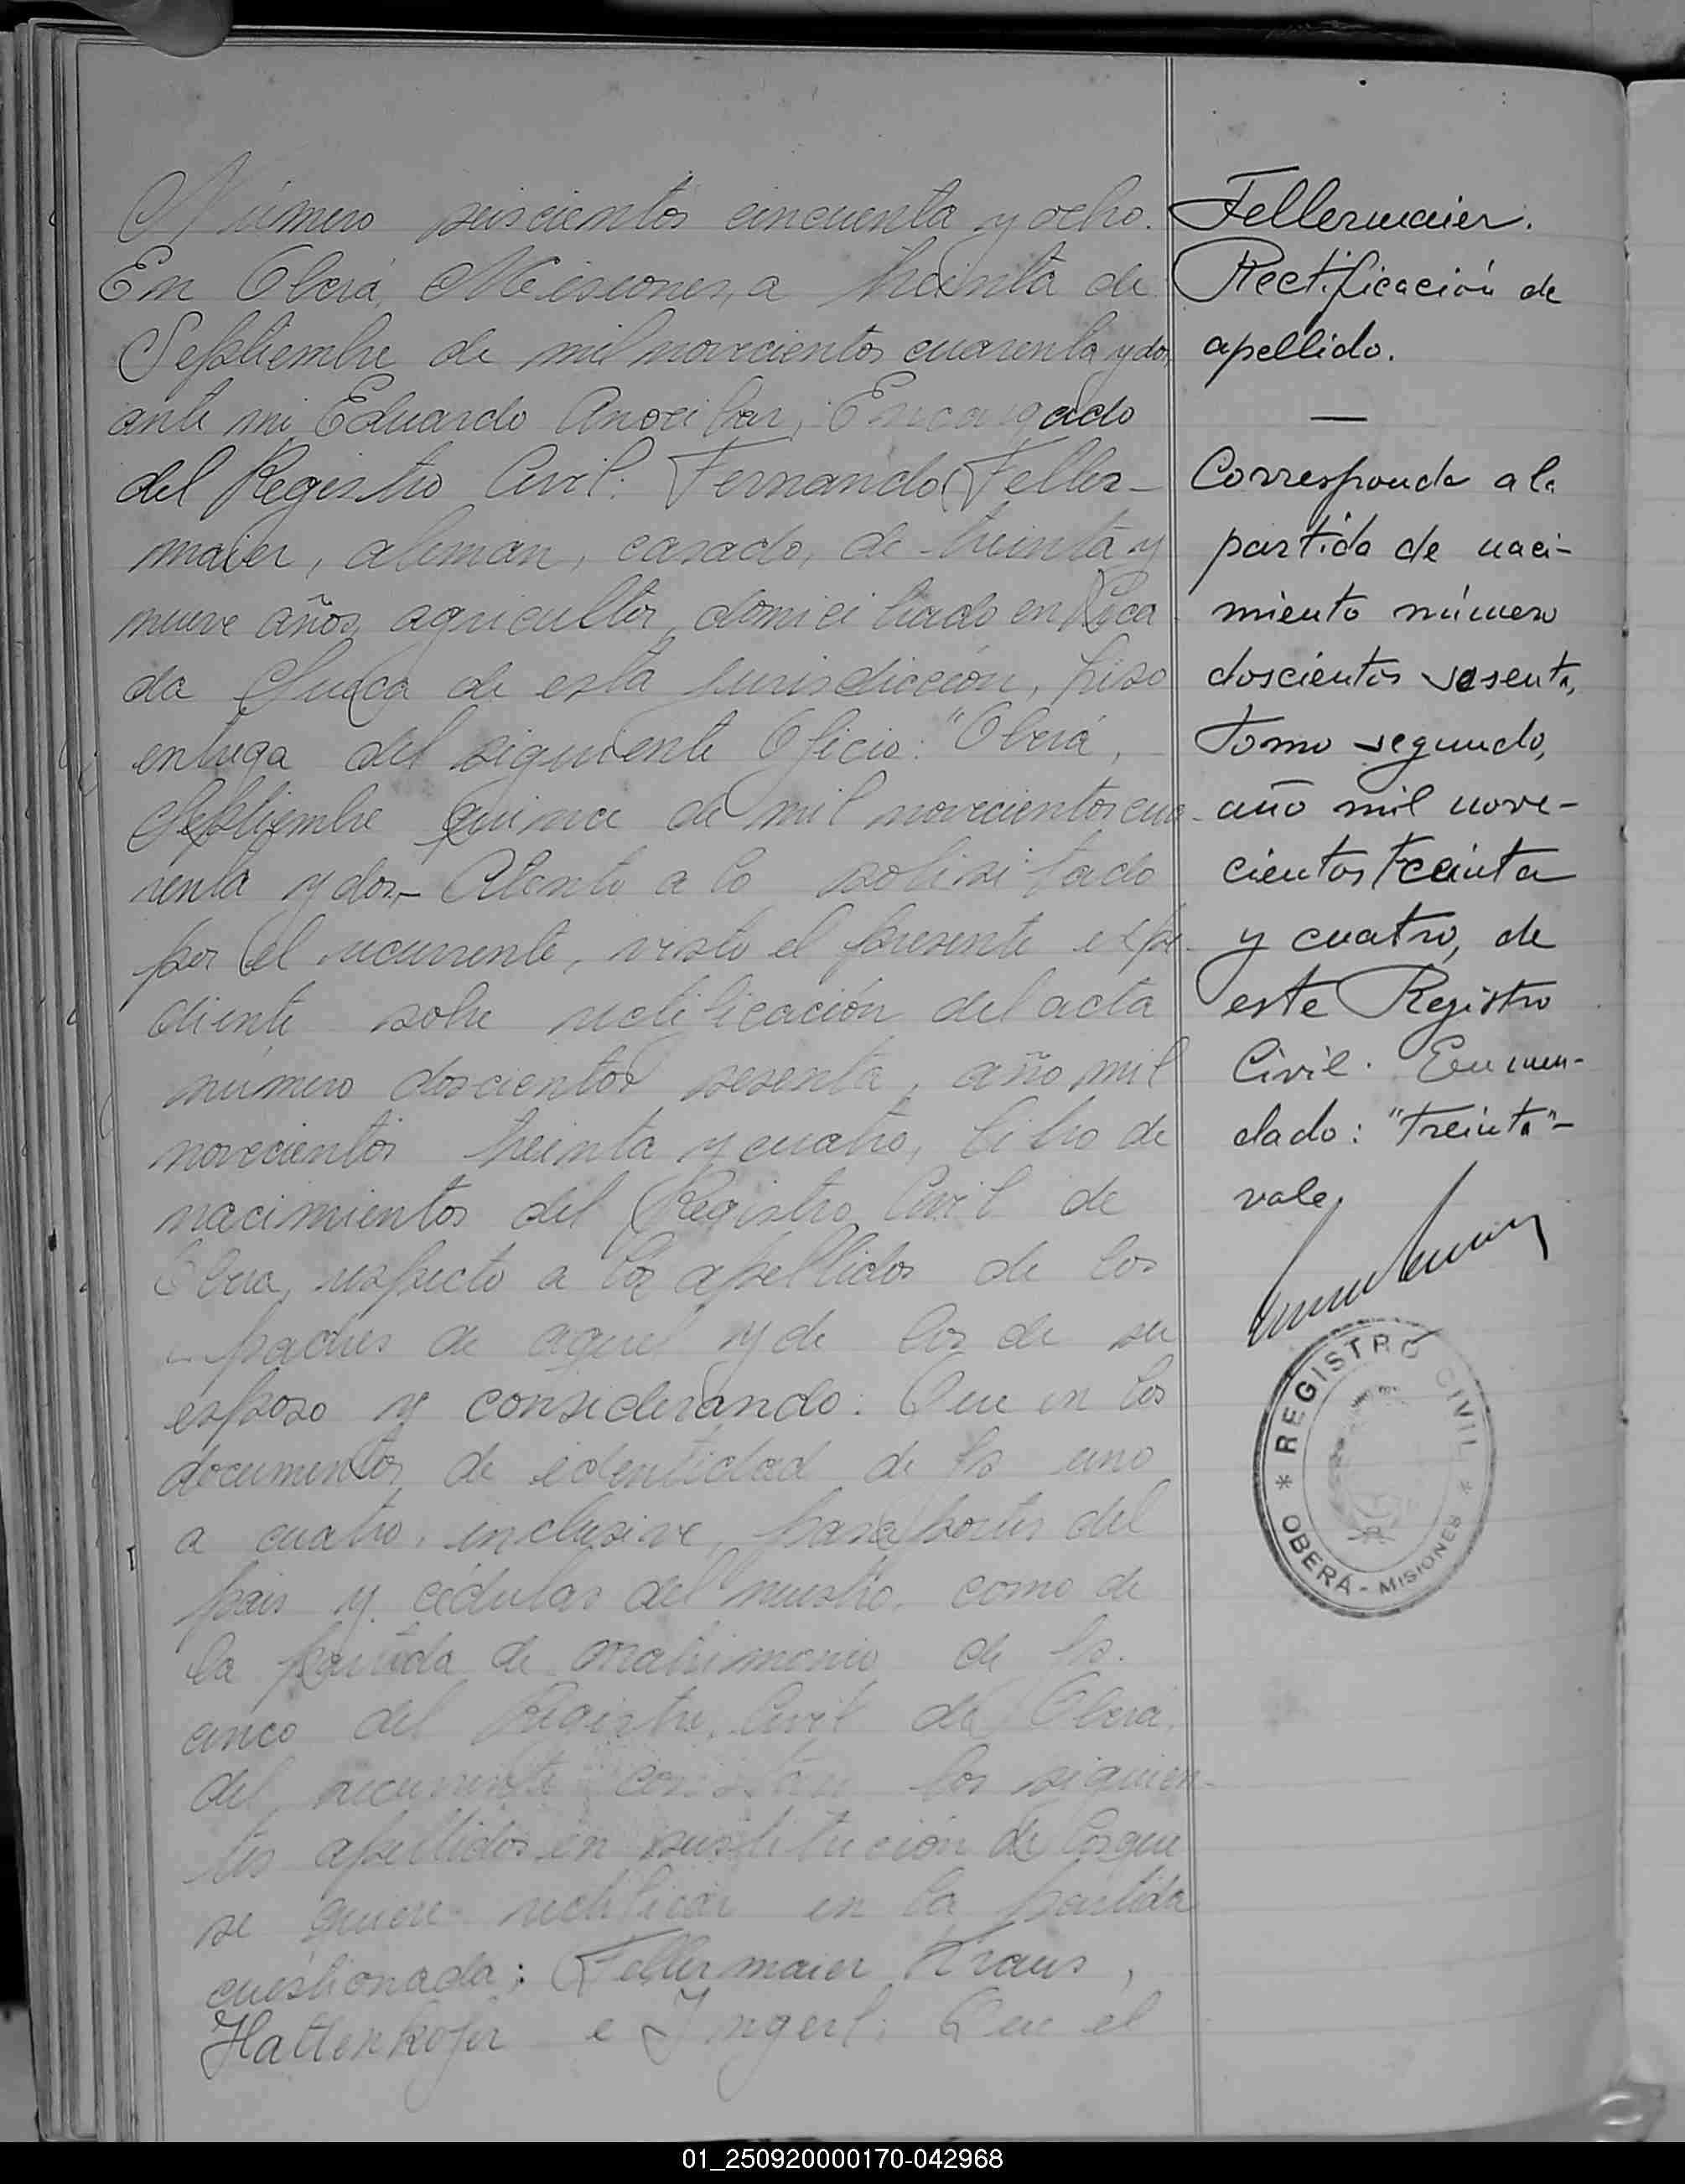 Número seiscientos cincuenta y ocho.
En Oberá, Misiones, a treinta de
Septiembre de mil novecientos cuarenta y dos,
ante mi Eduardo Anocibar, Encargado
del Registro Civil: Fernando Feller-
maier, aleman, casado, de treinta y
nueve años, agricultor, domiciliado en Pica
da Sueca de esta jurisdicción, hiso
entrega del siguiente Oficio: "Oberá,
Septiembre quince de mil novecientos cua-
renta y dos.- Atento a lo solisitado
por el recurrente, visto el presente expe-
diente sobre rectificación del acta
número doscientos sesenta, año mil
novecientos treinta y cuatro, libro de
nacimientos del Registro Civil de
Obera, respecto a los apellidos de los
padres de aquel y de los de su
esposo y considerando: Que en los
documentos de identidad de fs uno
a cuatro, inclusive, pasaportes del
pais y cédulas del nuestro, como de
la partida de matrimonio de fs.
cinco del Registro Civil de Oberá,
del recurrente constan los siguien-
tes apellidos en sustitución de los que
se quiere rectificar en la partida
cuestionada: Fellermaier, Kraus,
Hattenkofer e Ingerl; Que el
Fellermaier.
Rectificación de
apellido.
—
Corresponde a la
partida de naci-
miento número
doscientos sesenta,
tomo segundo,
año mil nove-
cientos treinta
y cuatro, de
este Registro
Civil. Enmen-
dado: "treinta"-
vale.
REGISTRO CIVIL
* OBERÁ - MISIONES *
01_250920000170-042968